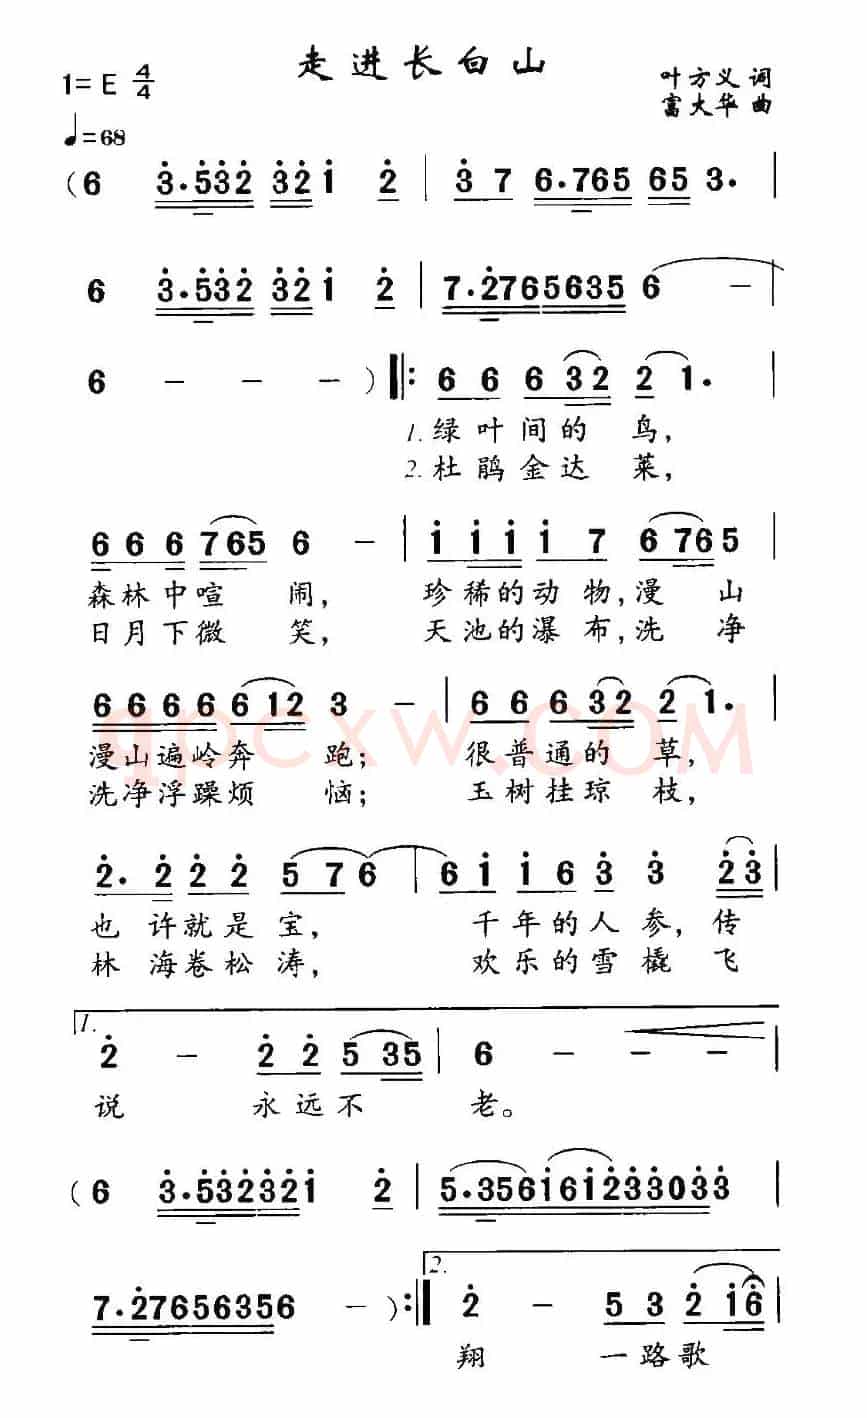 走进长白山
1= E 4/4
叶方义 词
富大华 曲
♩=68
(6 3·532 321 2 | 3 7 6·765 65 3· |
6 3·532 321 2 | 7·2765635 6 – |
6 – – – ) ‖: 6 6 6 32 2 1· |
1. 绿叶间的 鸟,
2. 杜鹃金达 莱,
6 6 6 765 6 – | 1 1 1 1 7 6 765 |
森林中喧 闹, 珍稀的动 物,漫 山
日月下微 笑, 天池的瀑 布,洗 净
6 6 6 6 6 12 3 – | 6 6 6 32 2 1· |
漫山遍岭奔 跑; 很普通的 草,
洗净浮躁烦 恼; 玉树挂琼 枝,
2· 2 2 2 5 7 6 | 6 1 1 6 3 3 23 |
也 许就是 宝, 千年的人 参, 传
林 海卷松 涛, 欢乐的雪 橇 飞
1.
2 – 2 2 5 35 | 6 – – – |
说 永远不 老。
(6 3·532321 2 | 5·356161233033 |
7·27656356 – ) :‖ 2. 2 – 5 3 2 16 |
翔 一路歌
qpcxw.COM